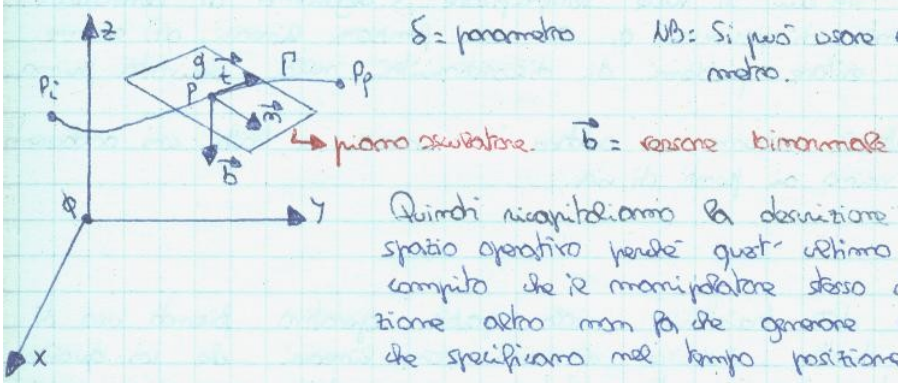 δ = parametro NB: Si può usare
metro.
z
Pi
g
t
Γ
Pf
P
n
b
piano osculatore. b = versore binormale
O
y
x
Quindi ricapitoliamo la descrizione
spazio operativo perché quest' ultimo
compito che il manipolatore stesso
zione altro non fa che generare
che specificano nel tempo posizione